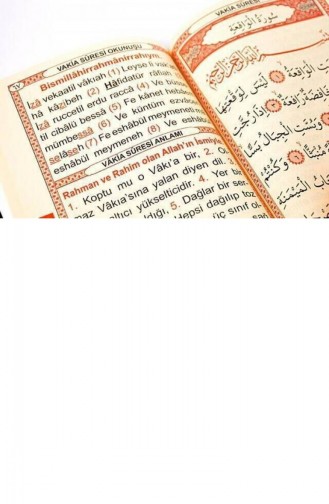 VAKİA SÛRESİ OKUNUŞU
Bismillâhirrahmânirrahıym.
İzâ vekaatil vâkıah (1) Leyse li vak
hâ kâzibeh (2) Hâfidatür râfiah
İzâ ruccetil erdu raccâ (4) Ve büs
til cibâlü bessâ (5) Fe kânet hebâe
mümbessâ (6) Ve küntüm ezvâce
selâseh (7) Fe eshâbül meymeneh
eshâbül meymeneh (8) Ve eshâb
VÂKİA SÛRESİ ANLAMI
Rahman ve Rahim olan Allah'ın ismiyle
1. Koptu mu o Vâk'a bir. 2. O
maz Vâkıa'sına yalan diyen dil. 3.
altıcı yükselticidir. 4. Yer bir
dığı, 5. Dağlar bir ser-
Hepsi dağılıp toz
üç sınıf ol
سُورَةُ الْوَاقِعَةِ
الْوَاقِعَةُ ۝ لَيْسَ لِوَقْعَتِهَا
رَافِعَةٌ ۝ اِذَا رُجَّتِ
وَبُسَّتِ الْجِبَالُ بَسًّا
مُنْبَثًّا ۝ وَكُنْتُمْ
الْمَيْمَنَةِ